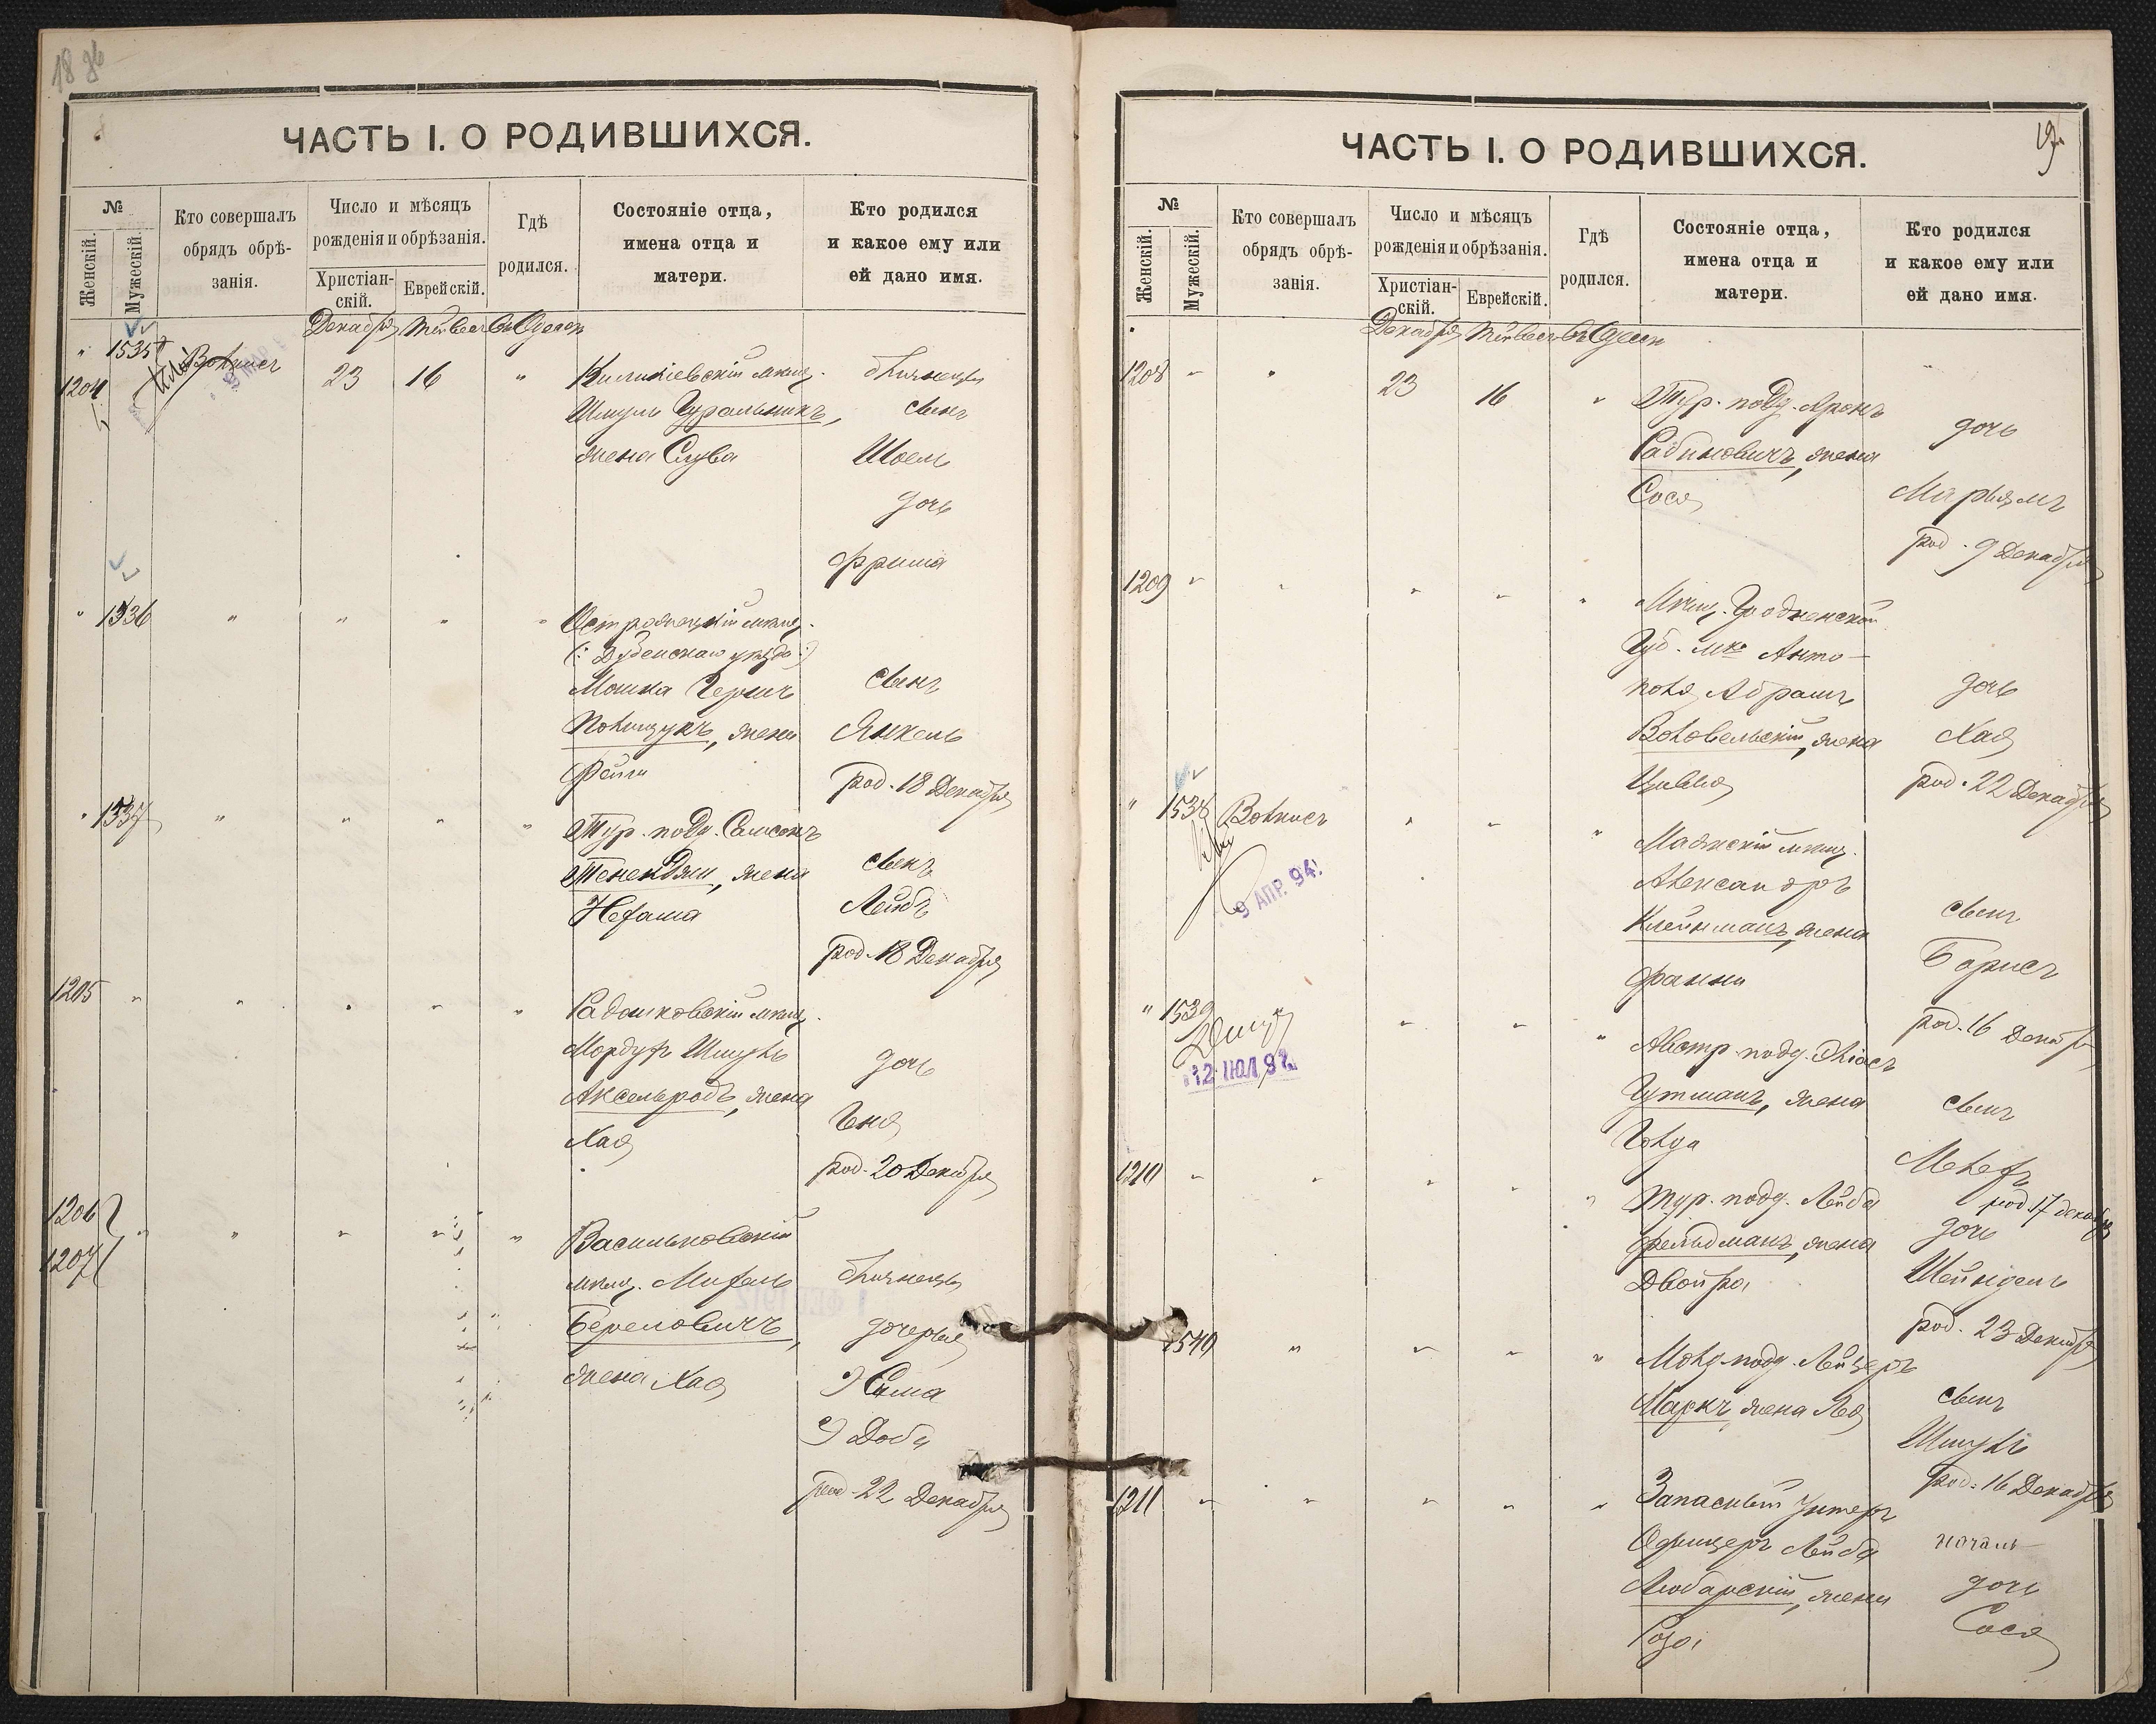 ЧАСТЬ I. О РОДИВШИХСЯ.
№
Женскій.
Мужескій.
Кто совершалъ
обрядъ обрѣ-
занія.
Число и мѣсяцъ
рожденія и обрѣзанія.
Христіан-
скій.
Еврейскій.
Гдѣ
родился.
Состояніе отца,
имена отца и
матери.
Кто родился
и какое ему или
ей дано имя.
Декабря
" 1535
1204
23 16 "
мѣщ. близнецы
Шмуль Гуральникъ, сынъ
жена Слува Шоель
дочь
Фрима
" 1536 " " " "
мѣщ.
(: Дубенскаго уѣзда :)
Мошка Герш
Полищукъ, жена
Фейга
сынъ
Янкель
род. 18 Декабря
" 1537 " " " "
Тур. подд. Самсонъ
жена
Нехама
сынъ
Лейбъ
род. 18 Декабря
1205 " " " " "
Радошковскій мѣщ.
Мордухъ Шмулъ
Аксельродъ, жена
Хая
дочь
Геня
род. 20 Декабря
1206
1207 " " " " "
Васильковскій
мѣщ. Михель
Береловичъ,
жена Хая
близнецы
дочери
Сима
Доба
род. 22 Декабря
ЧАСТЬ I. О РОДИВШИХСЯ.
№
Женскій.
Мужескій.
Кто совершалъ
обрядъ обрѣ-
занія.
Число и мѣсяцъ
рожденія и обрѣзанія.
Христіан-
скій.
Еврейскій.
Гдѣ
родился.
Состояніе отца,
имена отца и
матери.
Кто родился
и какое ему или
ей дано имя.
Декабря
1208 " " 23 16 "
Тур. подд. Аронъ
Рабиновичъ, жена
Сося
дочь
Марьямъ
род. 9 Декабря
1209 " " " " "
Мѣщ. Гродненской
Губ. мѣ. Анто-
поля Абрамъ
Воловельскій, жена
Цивья
дочь
Хая
род. 22 Декабря
" 1538 Волкисъ " " "
9 АПР. 94.
мѣщ.
Александръ
Клейнманъ, жена
Фанни
сынъ
Борисъ
род. 16 Декабр
" 1539 " " "
12 ИЮЛ 97.
Австр. подд. Эліасъ
Гутманъ, жена
Голда
сынъ
Мелехъ
род. 17 декабря
1210 " " " " "
Тур. подд. Лейба
Фельдманъ, жена
Двойра
дочь
Шейндель
род. 23 Декабря
1540 " " " "
Молд. подд. Лейзеръ
Маркъ, жена Лея
сынъ
Шмулъ
род. 16 Декабря
1211 " " " " "
Запасный Унтеръ
Офицеръ Лейба
Любарскій, жена
Роза
дочь
Сося